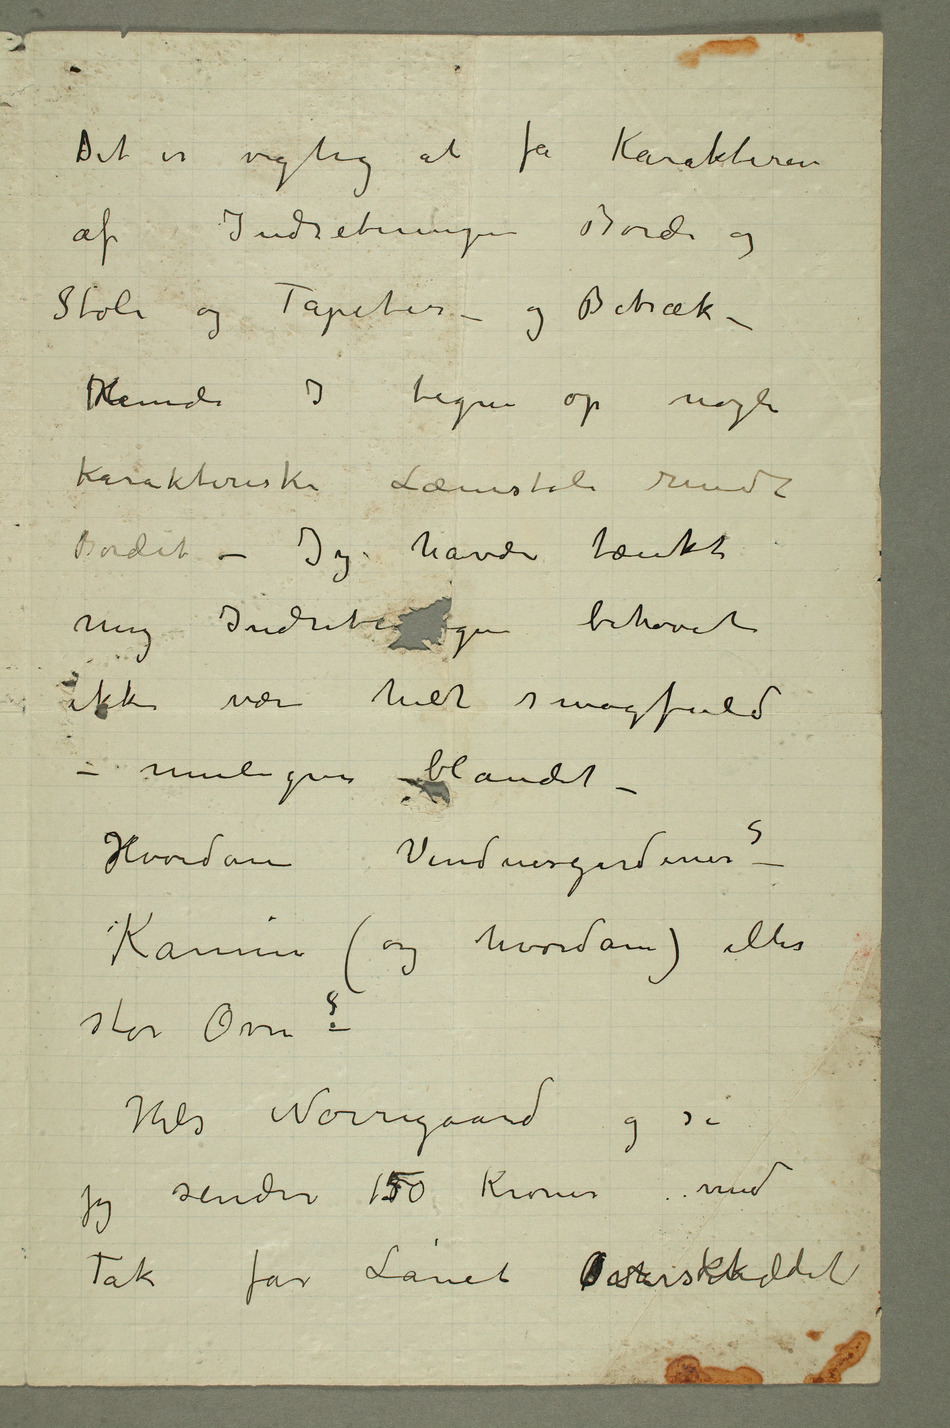 Det er vigtig at få Karakteren
af Indretningen Borde og
Stole og Tapeter – og Betræk –
Kunde I tegne op nogle
karakteriske Lænestole rundt
Bordet – Jeg havde tænkt
mig Indret gen behøvet
ikke være helt smagfuld
– muligens blandet –
Hvordan Vinduesgardiner? –
Kamin (og hvordan) eller
stor Ovn?
Hils Nørregaard og si
jeg sender 150 Kroner med
Tak for Lånet Overskuddet